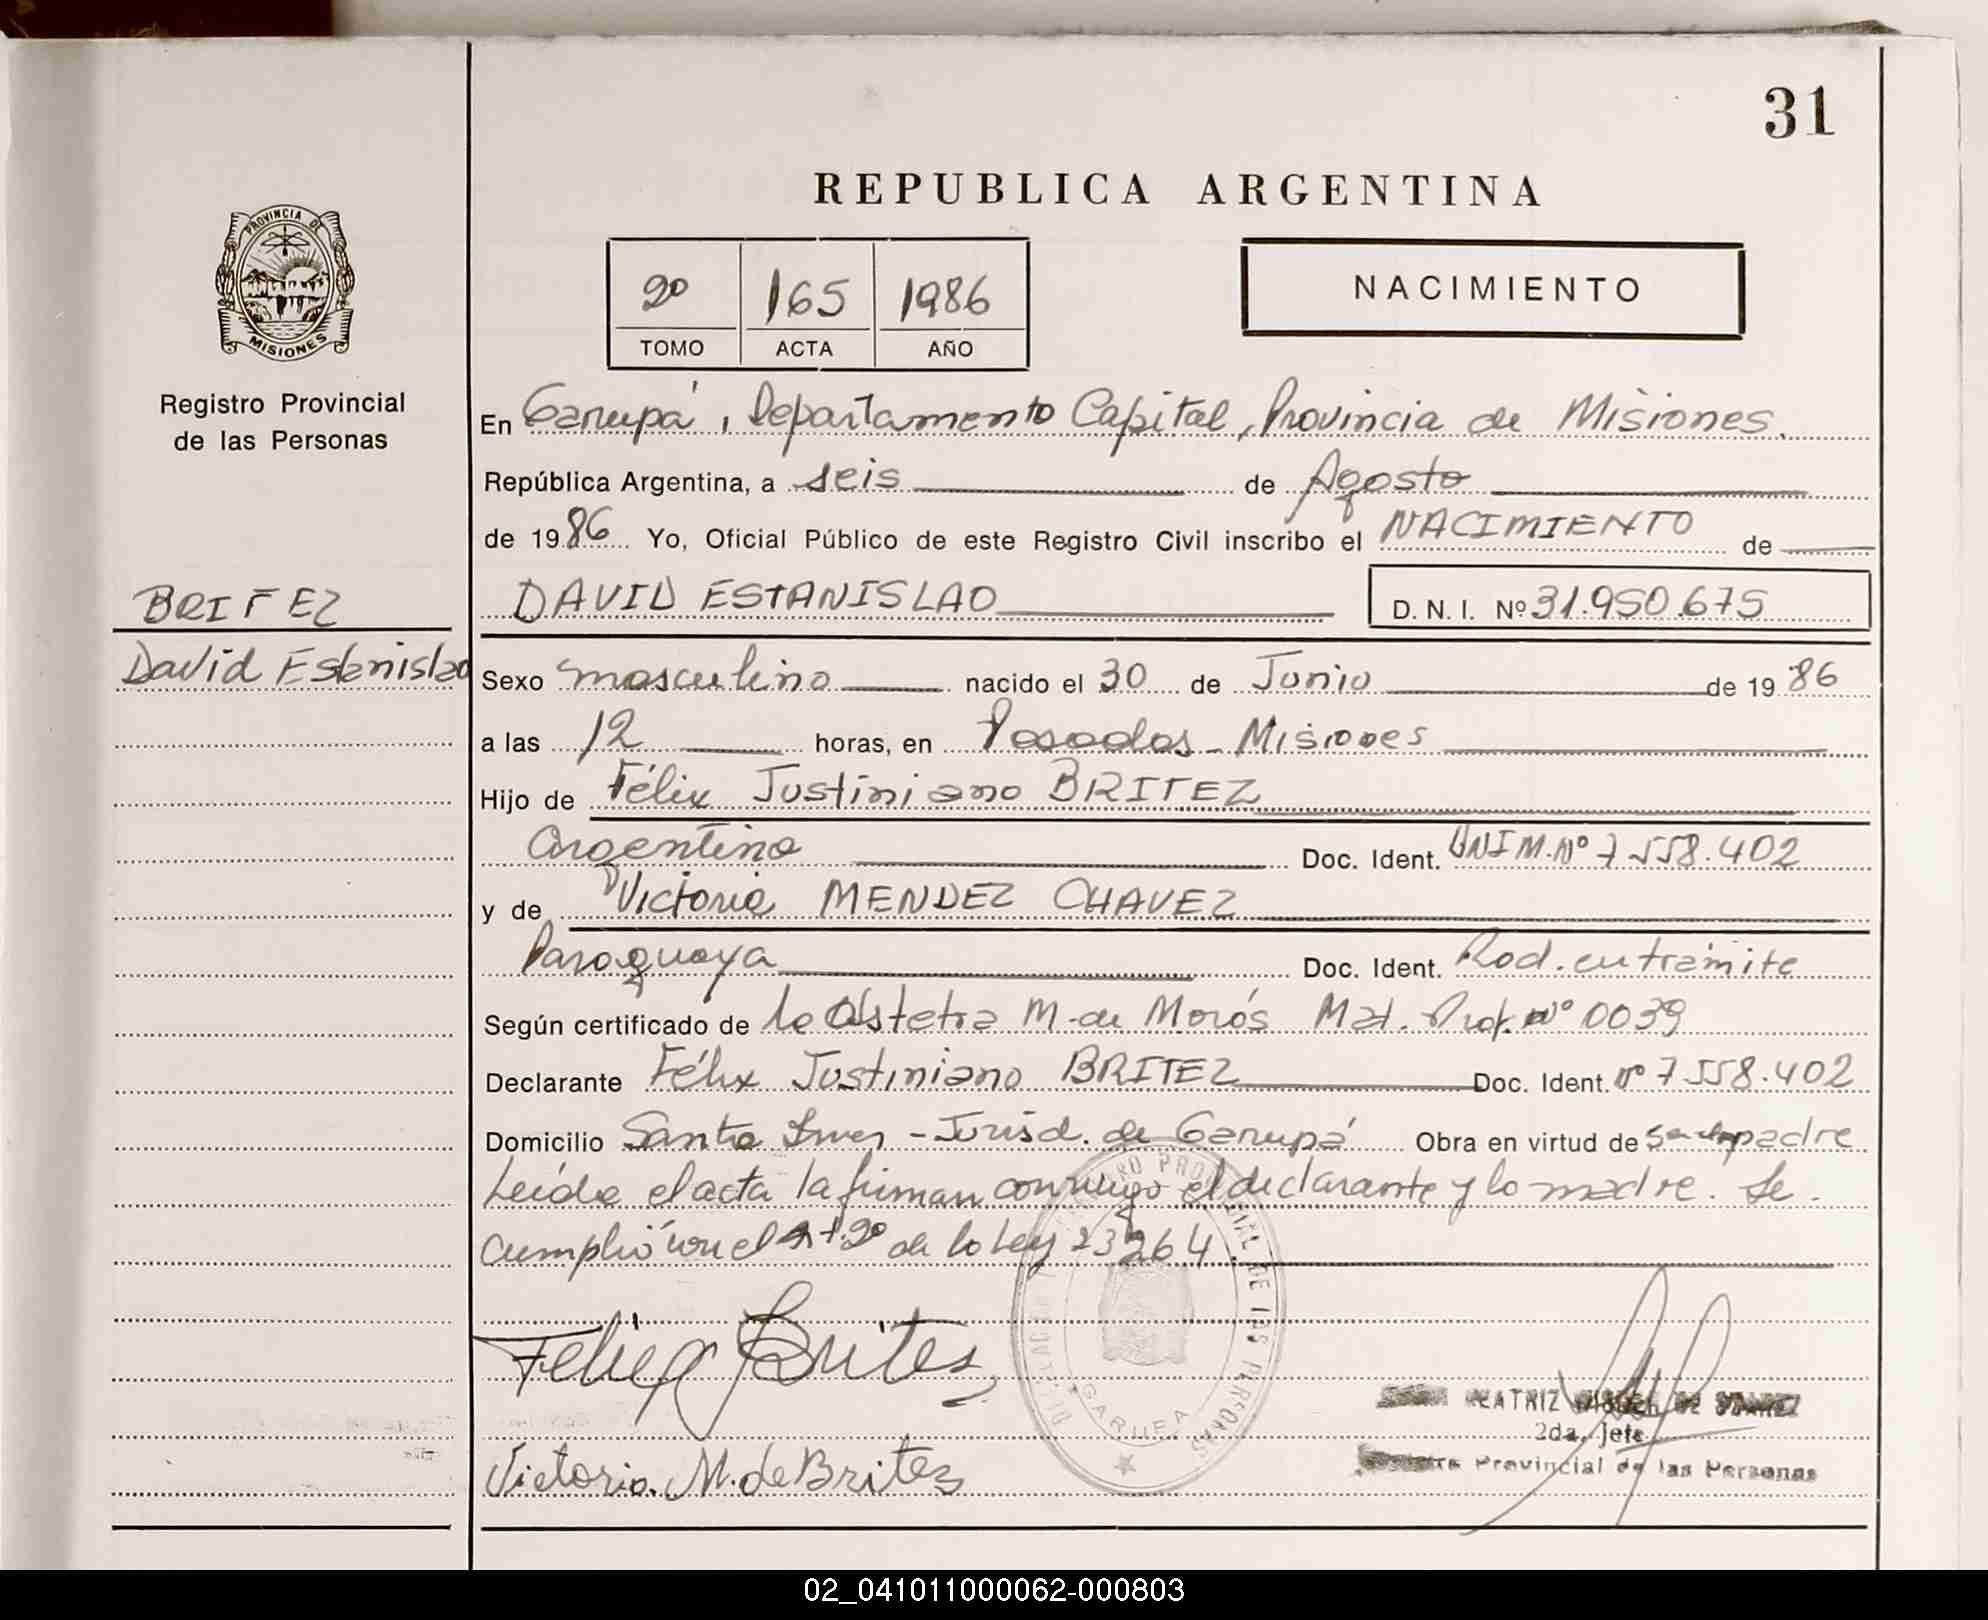 31
REPUBLICA ARGENTINA
PROVINCIA DE
MISIONES
Registro Provincial
de las Personas
2º 165 1986
TOMO ACTA AÑO
NACIMIENTO
En Garupá, Departamento Capital, Provincia de Misiones.
República Argentina, a seis de Agosto
de 1986 Yo, Oficial Público de este Registro Civil inscribo el NACIMIENTO de
BRITEZ
DAVID ESTANISLAO D. N. I. Nº 31.950.675
David Estanislao
Sexo masculino nacido el 30 de Junio de 1986
a las 12 horas, en Posadas - Misiones
Hijo de Félix Justiniano BRITEZ
Argentino Doc. Ident. DNI M. Nº 7 558.402
y de Victoria MENDEZ CHAVEZ
Paraguaya Doc. Ident. Rad. en trámite
Según certificado de la Obstetra M. de Morós Mat. Prof. Nº 0039
Declarante Félix Justiniano BRITEZ Doc. Ident. Nº 7 558.402
Domicilio Santa Ines - Jurisd. de Garupá Obra en virtud de padre
Leída el acta la firman conmigo el declarante y la madre. Se
cumplió con el Art. 2º de la Ley 23264
Felix J Britez
Victoria. M. de Britez
BEATRIZ DE
2da. Jefe
Provincial de las Personas
GARUPA
02_041011000062-000803